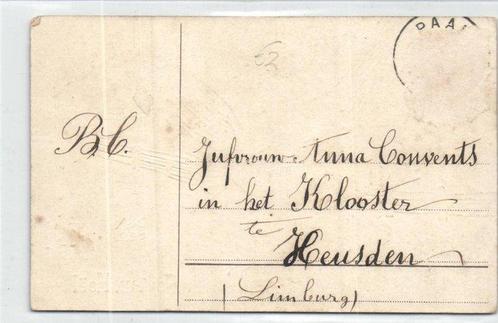 PAAL
52
B.C.
Jufvrouw Anna Convents
in het Klooster
te
Heusden
(Limburg)